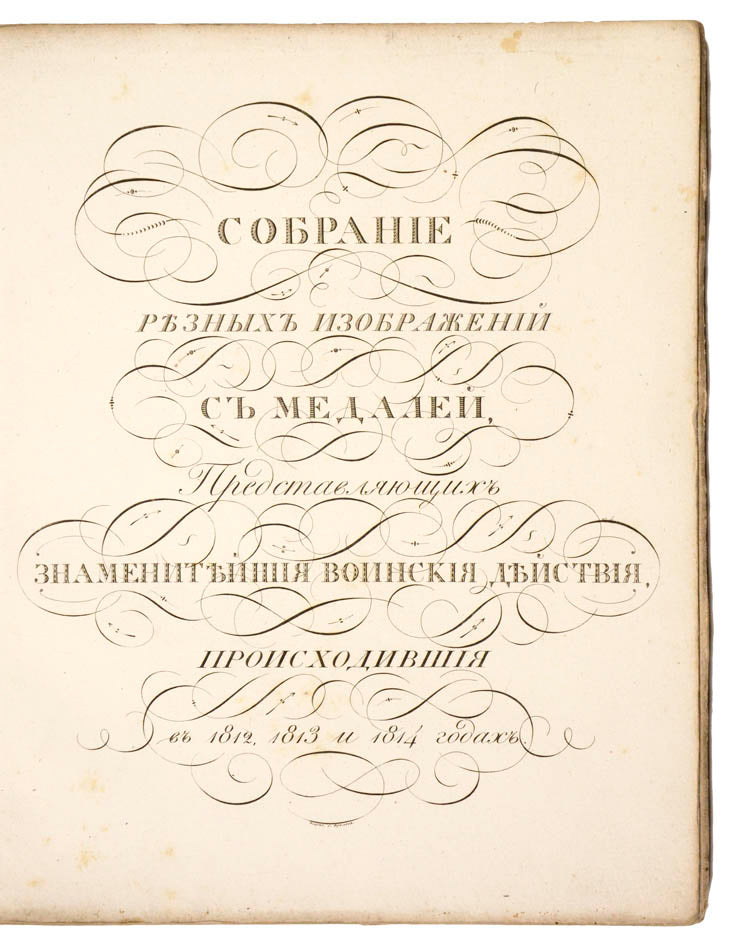 СОБРАНІЕ
РѢЗНЫХЪ ИЗОБРАЖЕНІЙ
СЪ МЕДАЛЕЙ,
Представляющихъ
ЗНАМЕНИТѢЙШІЯ ВОИНСКІЯ ДѢЙСТВІЯ,
ПРОИСХОДИВШІЯ
въ 1812, 1813 и 1814 годахъ.